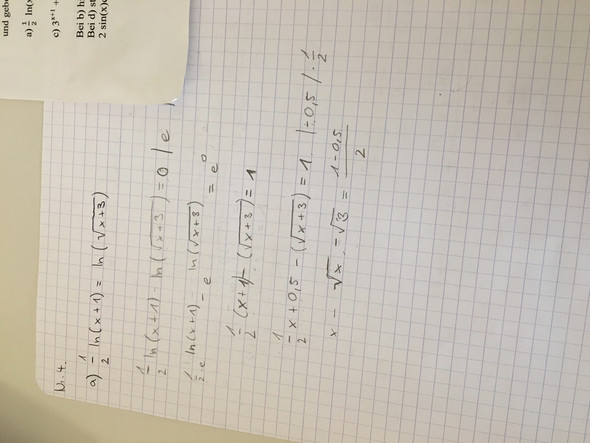 und gebe
a) 1/2 ln(x
c) 3^(x+1) +
Bei b) h
Bei d) st
2 sin(x)c
Nr. 4.
a) 1/2 ln(x+1) = ln(√(x+3))
1/2 ln(x+1) - ln(√(x+3)) = 0 | e
1/2 · e^(ln(x+1)) - e^(ln(√(x+3))) = e^0
1/2 (x+1) - (√(x+3)) = 1
1/2 x + 0,5 - (√(x+3)) = 1 | -0,5 / · 1/2
x - √x - √3 = (1-0,5)/2